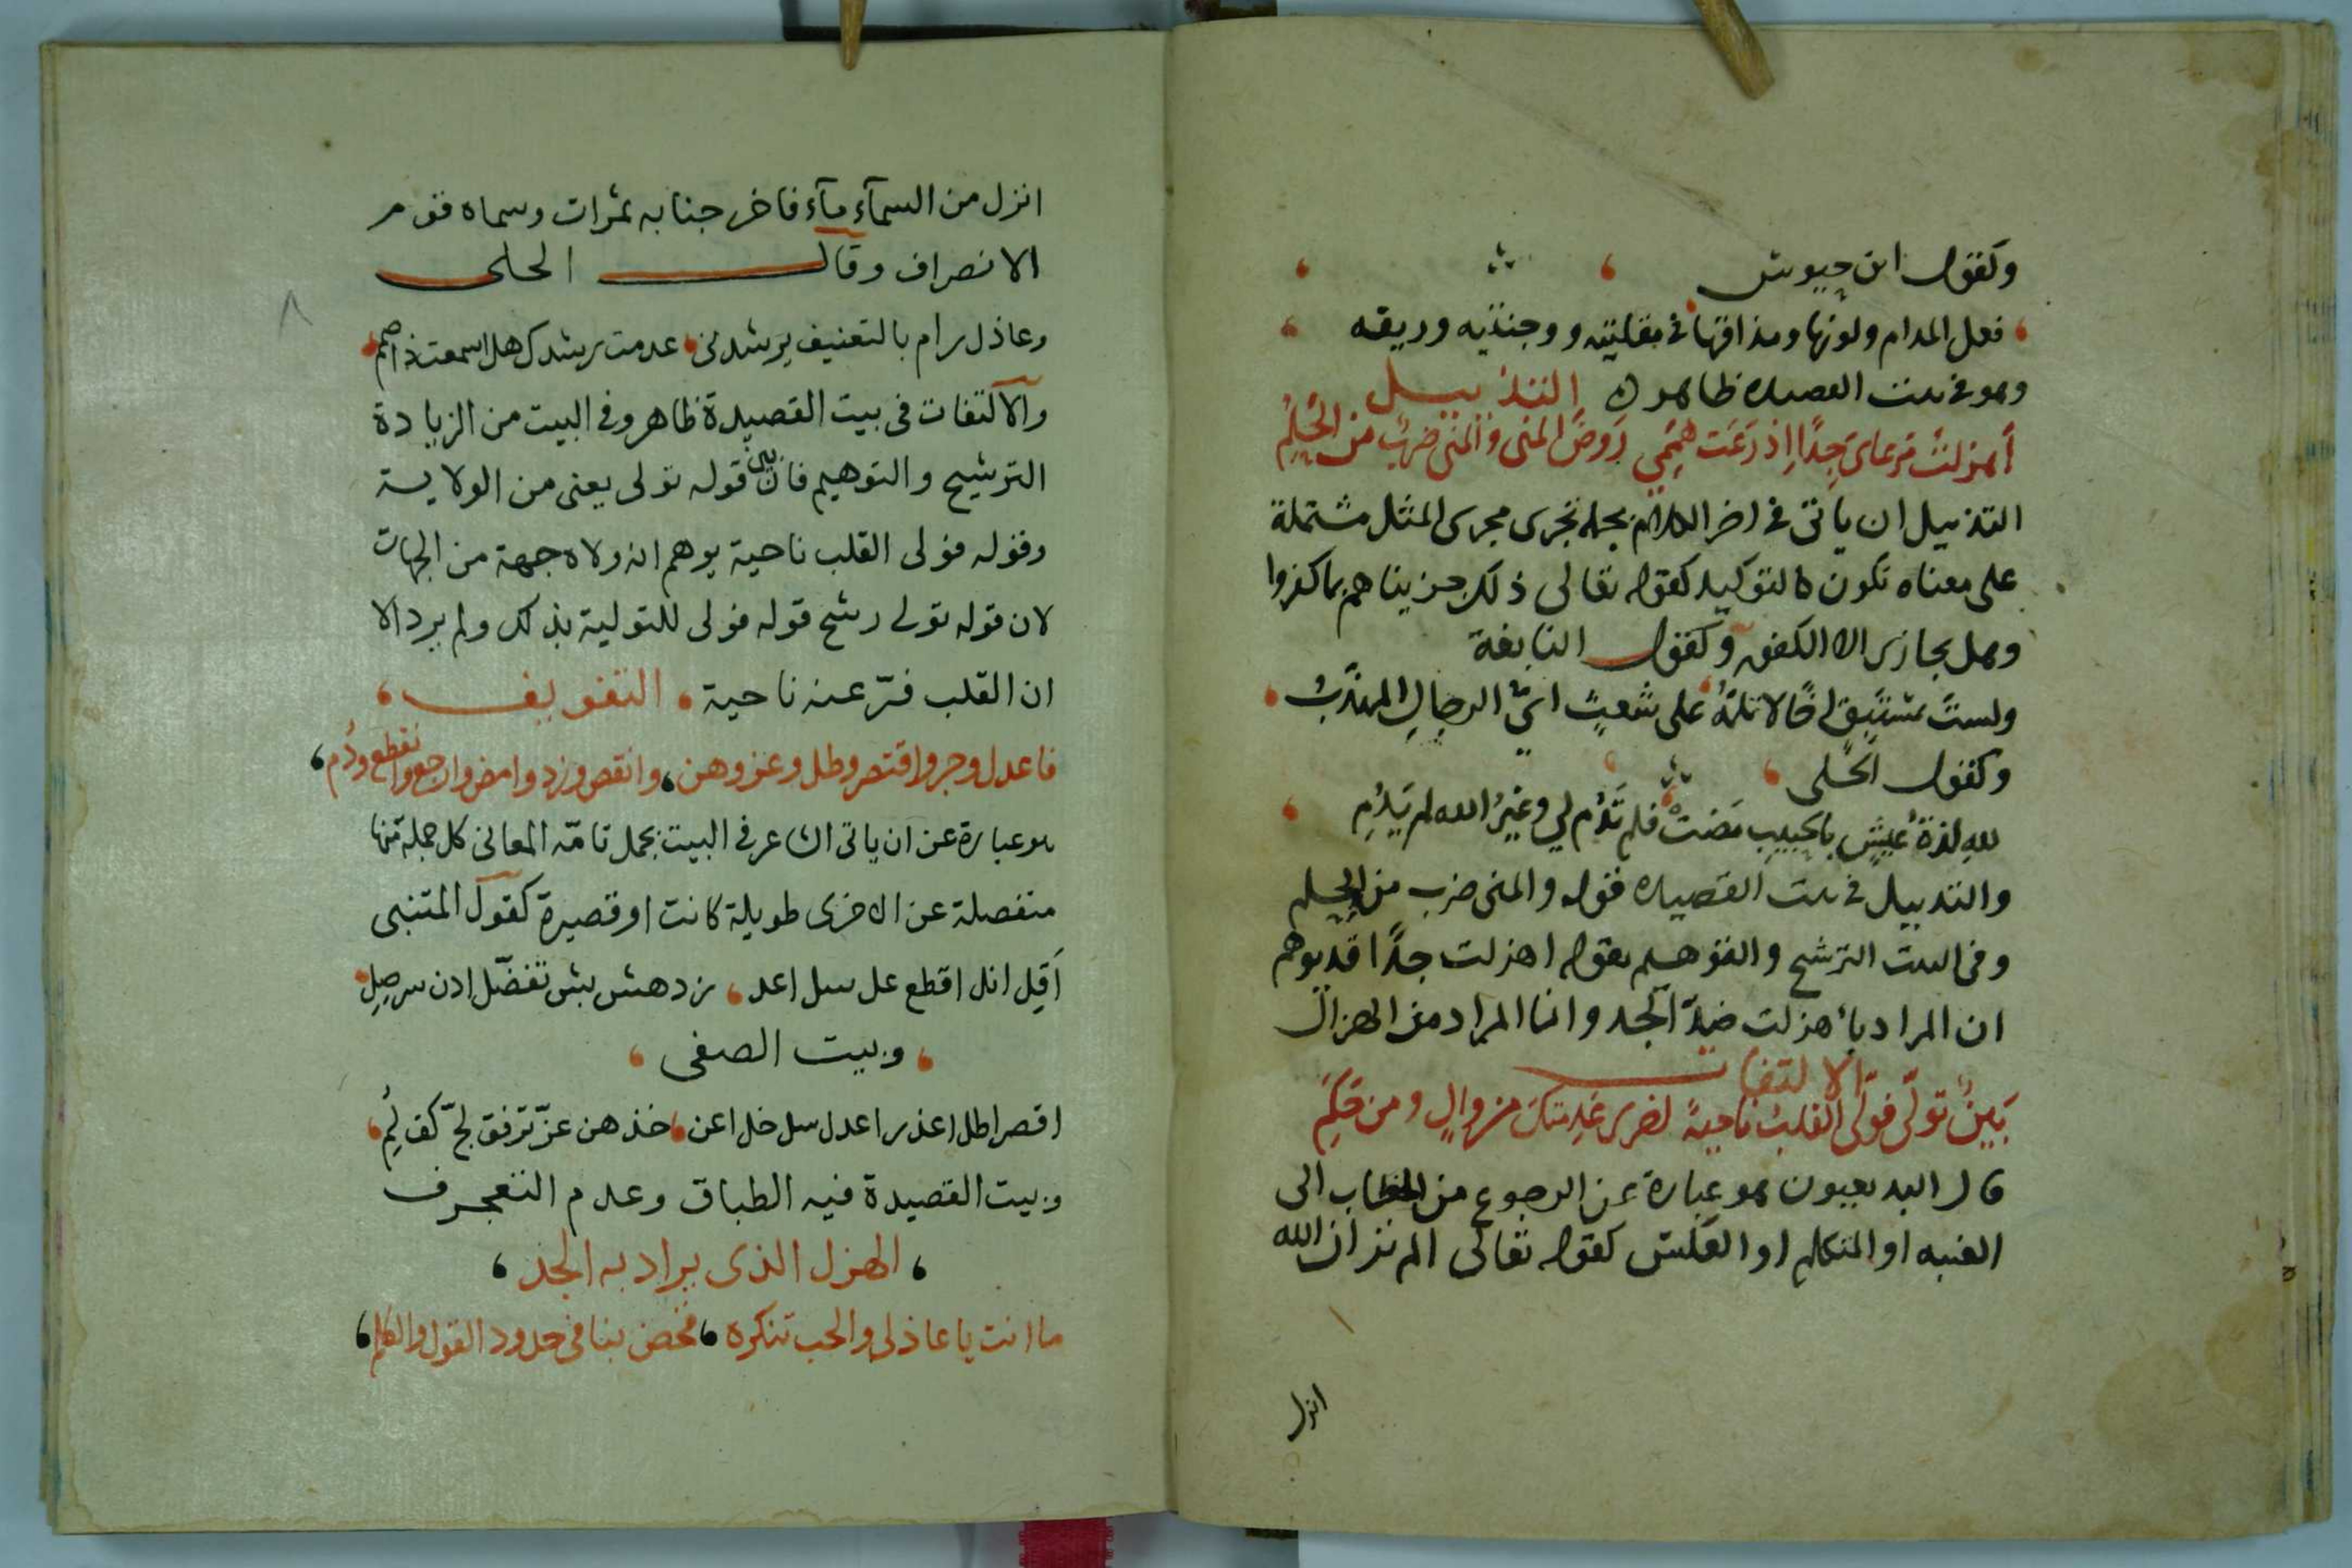 وكقول ابن حيوش
فعل المدام ولونها ومذاقها في مقلتيه ووجنتيه وريقه
وهو في بيت القصيده ظاهر التذييل
أهزلت مرعاى جدًا إذ رَعَت هِمَمِي رَوضَ المنى والمنى ضربٌ من الحُلمِ
التذييل ان ياتى في اخر الكلام بجمله تجرى مجرى المثل مشتملة
على معناه تكون كالتوكيد كقوله تعالى ذلك جزيناهم بما كفروا
وهل يجازى الا الكفور وكقول النابغة
ولستَ بمستَبقٍ اخًا لا تلمّهُ على شعثٍ اىّ الرجالِ المهذّبُ
وكقول الحلى
للهِ لذةُ عيشٍ بالحبيبِ مَضَتْ فلم تَدُم لي وغيرُ الله لم يَدُمِ
والتذييل في بيت القصيده قوله والمنى ضرب من الحلم
وفى البيت الترشيح والتوهيم بقوله اهزلت جدًا قد يوهم
ان المراد بأهزلت ضدّ الجد وانما المراد من الهزال
الالتفات
بَينٌ تولّى فولّى القلبُ ناحيةً لضرى عَدِمتكَ من والٍ ومن حَكمَ
قال البديعيون هو عبارة عن الرجوع من الخطاب الى
الغيبه او المتكلم او العكس كقوله تعالى الم تر ان الله
انزل
انزل من السمآء مآء فاخرجنا به ثمرات وسماه قوم
الانصراف وقال الحلى
وعاذل رام بالتعنيف يرشدنى عدمت رشدك هل اسمعت ذا صمم
والالتفات فى بيت القصيدة ظاهر وفى البيت من الزيادة
الترشيح والتوهيم فان بين قوله تولى يعنى من الولاية
وقوله فولى القلب ناحية يوهم انه ولاه جهة من الجهات
لان قوله تولى رشح قوله فولى للتولية بذلك ولم يرد الا
ان القلب فرّ عنه ناحية التفويف
فاعدل وجر واقتصر وطل وعز وهن وانقص وزد وامض وارجع وانقطع ودُم
هو عبارة عن ان ياتى الشاعر فى البيت بجمل تامّه المعانى كل جملة منها
منفصلة عن الاخرى طويلة كانت او قصيرة كقول المتنبى
اَقِل انل اقطع عل سل اعد زد هش بش تفضّل ادن سر صِلِ
وبيت الصفى
اقصر اطل اعذر اعدل سل خل اعن خذ هن عزّ ترفق لجّ كف لُمِ
وبيت القصيدة فيه الطباق وعدم التعجرف
الهزل الذى يراد به الجد
ما انت يا عاذلى والحب تنكره فخض بنا فى حدود القول والكلم